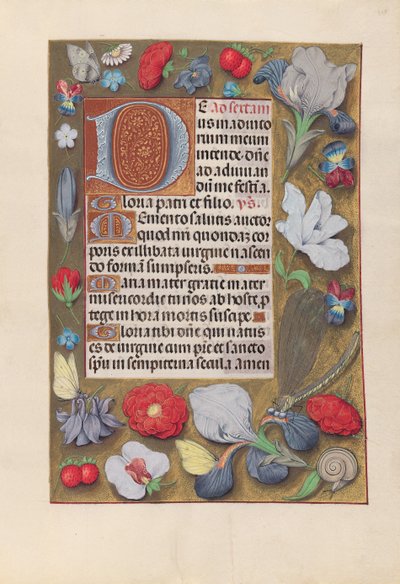 E ad sextam
us in adiuto
rium meum
intende. dñe
ad adiuuan
dũ me festi a.
Gloria patri et filio. ys.
Memento salutis auctor
quod nr̃i quondaz cor
poris ex illibata uirgine nascen
do formã sumpseris.
Maria mater gratie mater
misericordie tu nos ab hoste p̱
tege in hora mortis suscipe.
Gloria tibi dñe qui natus
es de uirgine cum pr̃e et sancto
spũ in sempiterna secula amen